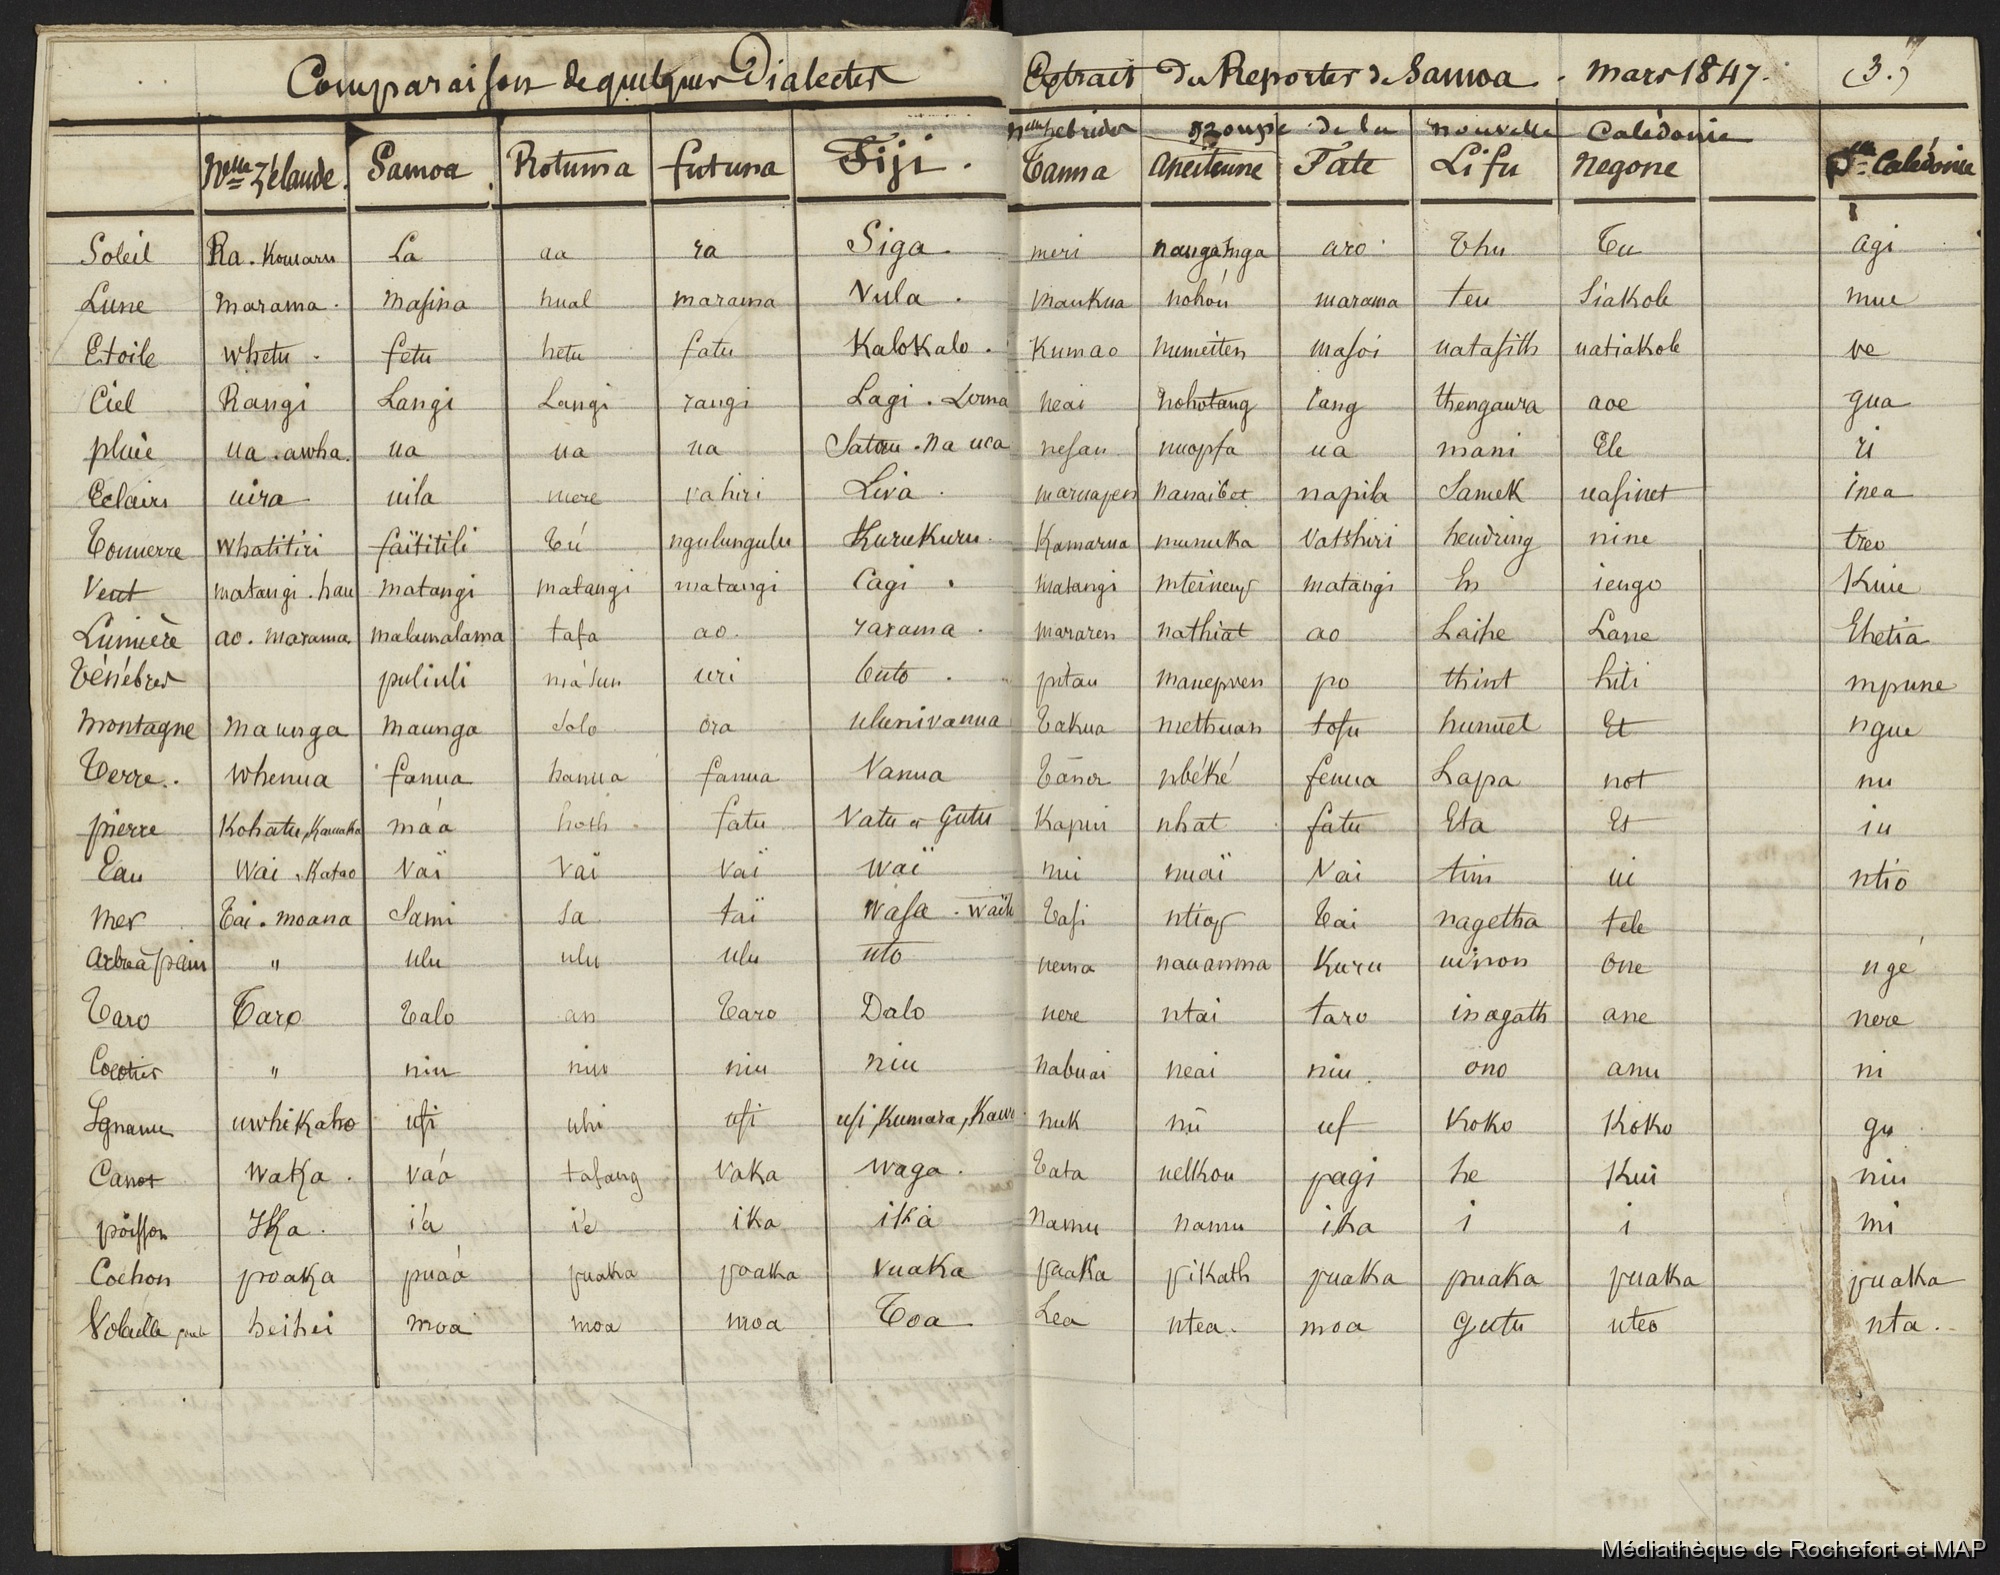 Comparaison de quelques Dialectes Extrait du Reporter de Samoa . Mars 1847. (3.)
Nlles hebrides groupe de la nouvelle Calédonie
Nlle Zélande. Samoa Rotuma futuna Fiji . Tanna Aneiteume Fate Lifu Negone Nlle Calédonie
Soleil Ra . Komaru La aa ra Siga . meri aro Thu Tu agi
Lune marama . masina hual marama Vula . maukua nohóu marama teu Siakole mue
Etoile whetu . fetu hetu fatu Kalokalo . Kumao numeiten masoi uatasith uatiakole ve
Ciel Rangi Langi Langi rangi Lagi . Loma neai nohotang lang thengawra aoe gua
pluie ua . awha. ua ua ua Satou . na uca nesan nuopfa ua mani Ele ri
Eclairs uira uila mere vahiri Liva . maruapen nanaibet napila Samek uasinet inea
Tonnerre whatitiri faïtitili Tú ngulungulu Kurukuru . Kamarua munuka Vatshiri hendring nine treo
Vent matangi . hau matangi matangi matangi Cagi . matangi matangi iengo Kuie
Lumière ao . marama malamalama tafa ao . rarama . mararen nathiat ao Laihe Lane Ehetia
Ténébres puliuli uri buto . pitau po thint hiti mpune
Montagne maunga maunga Solo ora ulunivanua Takua methuan tofu hunuet Et ngue
Terre . whenua fanua hanua fanua Vanua nbéké fenua Lapa not nu
pierre Kohatu, Kamaka máá hoth fatu Vatu or Gutu Kapin nhat fatu Eta Et iu
Eau Wai , Katao Vaï Vaï Vaï Waï nui nuaï Vai tim ui ntio
Mer Tai . moana Sami Sa taï Wasa . Tasi Tai nagetha tele
Arbre à pain " ulu ulu ulu uto nema nauanma Kuru uinon One ngé
Taro Taro Talo an Taro Dalo nere ntai taro inagath ane nere
Cocotier " niu niu niu niu nabuai neai niu . ono anu ni
Igname uwhi Kaho ufi uhi ufi ufi , Kumara , Kawi nuk nū uf Koko Koko gu
Canot Waka . váá tafang Vaka Waga . Tata nelkou pagi he Kui niu
poisson Ika . i'a i'e ika ika Namu namu ika i i mi
Cochon poaka puáá puaka poaka Vuaka puaka pikath puaka puaka puaka puaka
Volaille poule heihei moa moa moa Toa Lea ntea . moa Gutu uteo nta .
Médiathèque de Rochefort et MAP